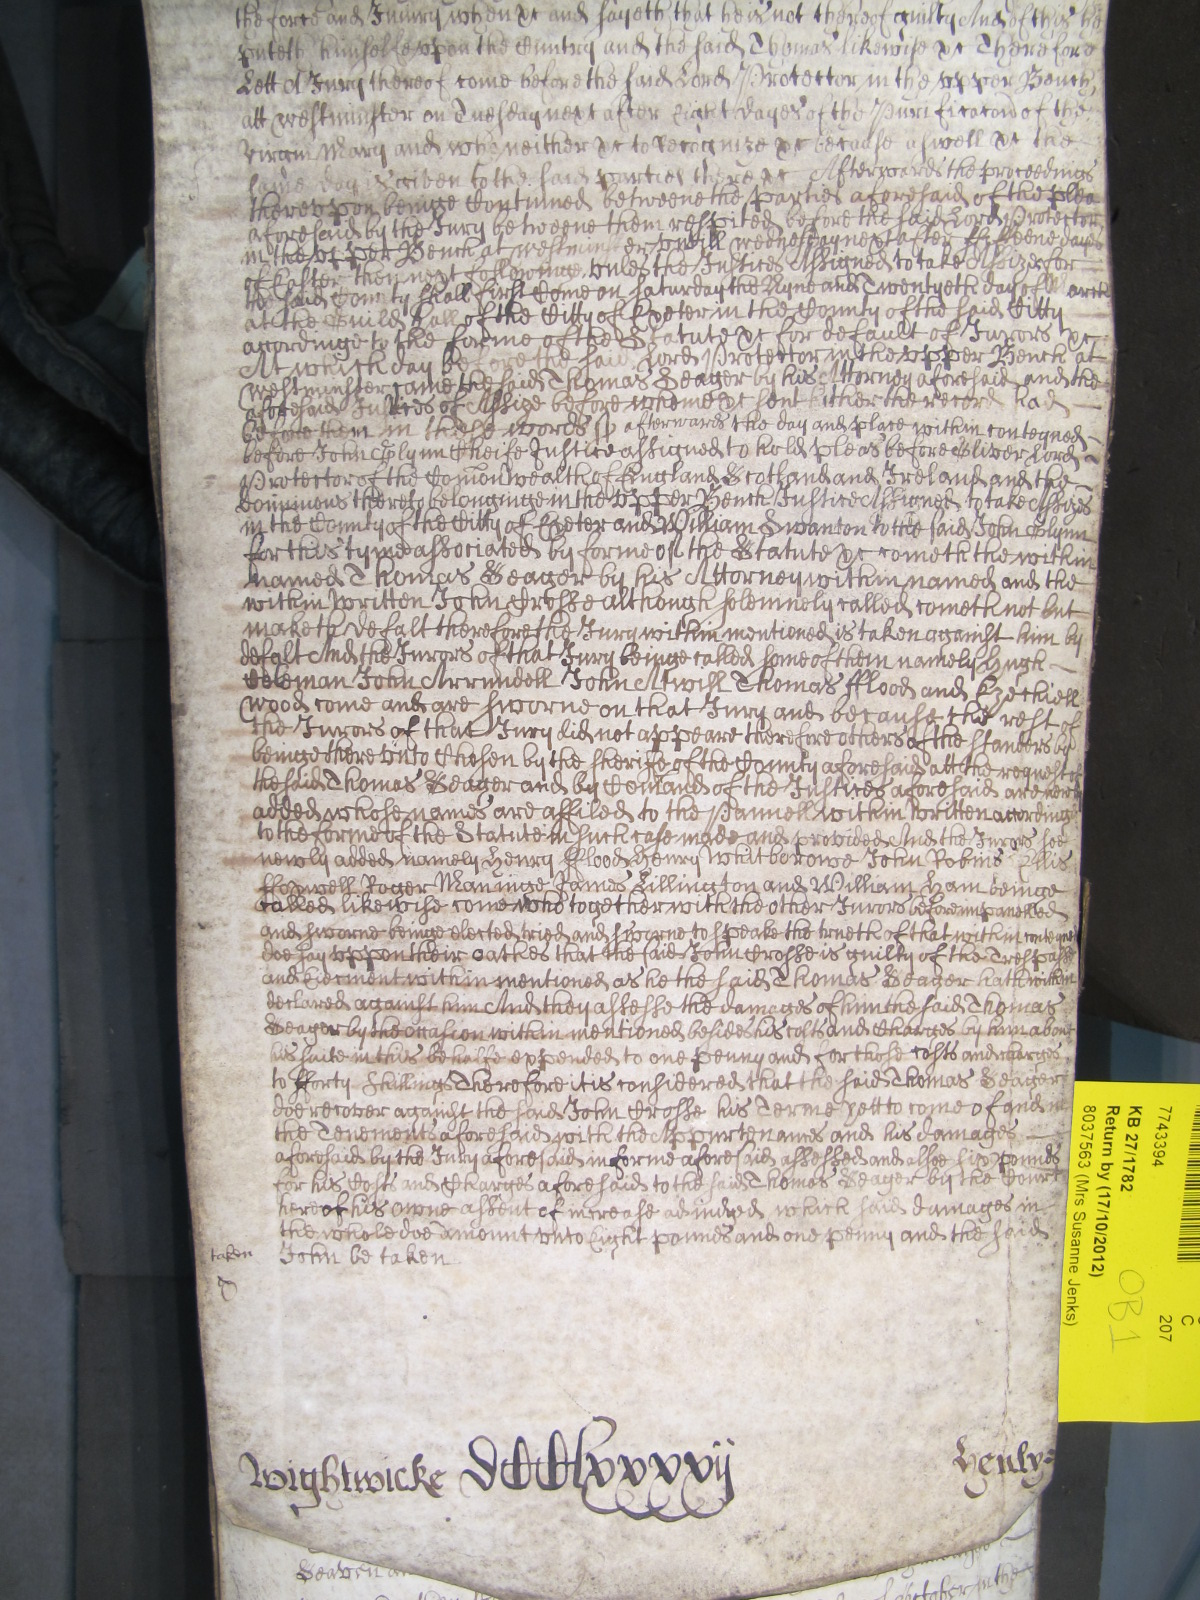 the force and Iniury when &c and sayeth that he is not thereof guilty And of this he
putteth himselfe vppon the Cuntry and the said Thomas likewise &c Therefore
Lett A Iury thereof come before the said Lord Protector in the vpper Bench
att Westminster on Tuesday next after Eight dayes of the Purificacon of the
Virgin Mary and who neither &c to recognize &c because aswell &c the
same day is given to the said parties there &c Afterwards the proceedings
therevppon beinge Continued betweene the parties aforesaid of the plea
aforesaid by the Iury betweene them respited before the said Lord Protector
in the vpper Bench at Westminster vntill wednesday next after fifteene dayes
of Easter then next followinge vnles the Iustices Assigned to take Assizes for
the said County shall first Come on Saturday the Nyne and Twentyeth day of March
at the Guild Hall of the Citty of Exeter in the County of the said Citty
accordinge to the forme of the Statute &c for default of Iurors &c
At which day before the said Lord Protector in the vpper Bench at
Westminster came the said Thomas Seager by his Attorney aforesaid and the
aforesaid Iustices of Assize before whome &c sent hither the record had
before them in these words ss afterwards the day and place within conteyned
before Iohn Glynn Cheife Iustice assigned to hold pleas before Oliver Lord
Protector of the Comonwealth of England Scotland and Ireland and the
Dominions thereto belonginge in the vpper Bench Iustice Assigned to take Assizes
in the County of the Citty of Exeter and William Swanton to the said Iohn Glynn
for this tyme associated by forme of the Statute &c cometh the within
named Thomas Seager by his Attorney within named and the
within written Iohn Crosse although solemnely called cometh not but
maketh defalt therefore the Iury within mentioned is taken against him by
defalt And the Iurors of that Iury beinge called some of them namely Hugh
Coleman Iohn Arrundell Iohn Atwill Thomas fflood and Ezechiell
Wood come and are sworne on that Iury and because the rest of
the Iurors of that Iury did not appeare therefore others of the standers by
beinge there vnto Chosen by the sherife of the County aforesaid att the request of
the said Thomas Seager and by Comand of the Iustices aforesaid are newly
added whose names are affiled to the Pannell within written accordinge
to the forme of the Statute in such case made and provided And the Iurors soe
newly added namely Henry fflood Henry Whitborowe Iohn Robins Ellis
Roger Maninge Iames Lillington and William Ham beinge
called likewise come who together with the other Iurors before impanelled
and sworne beinge elected tried and sworne to speake the trueth of that within conteyned
doe say vppon their oathes that the said Iohn Crosse is guilty of the Trespasse
and Eiectment within mentioned as he the said Thomas Seager hath within
declared against him And they assesse the damages of him the said Thomas
Seager by the occasion within mentioned besides his costs and Charges by him about
his suite in this behalfe expended to one penny and for those costs and charges
to fforty shillings Therefore it is considered that the said Thomas Seager
doe recover against the said Iohn Crosse his Terme yett to come of and in
the Tenements aforesaid with the Appurtenances and his damages
aforesaid by the Iury aforesaid in forme aforesaid assessed and alsoe six pounds
for his Costs and Charges aforesaid to the said Thomas Seager by the Court
here of his owne assent of increase adiudged which said damages in
the whole doe amount vnto Eight pounds and one penny and the said
taken Iohn be taken
Wightwicke DCCClxxxxvij Henly
Seaven
of October in the
7743394
C
207
KB 27/1782
Return by (17/10/2012)
8037563 (Mrs Susanne Jenks)
OB1